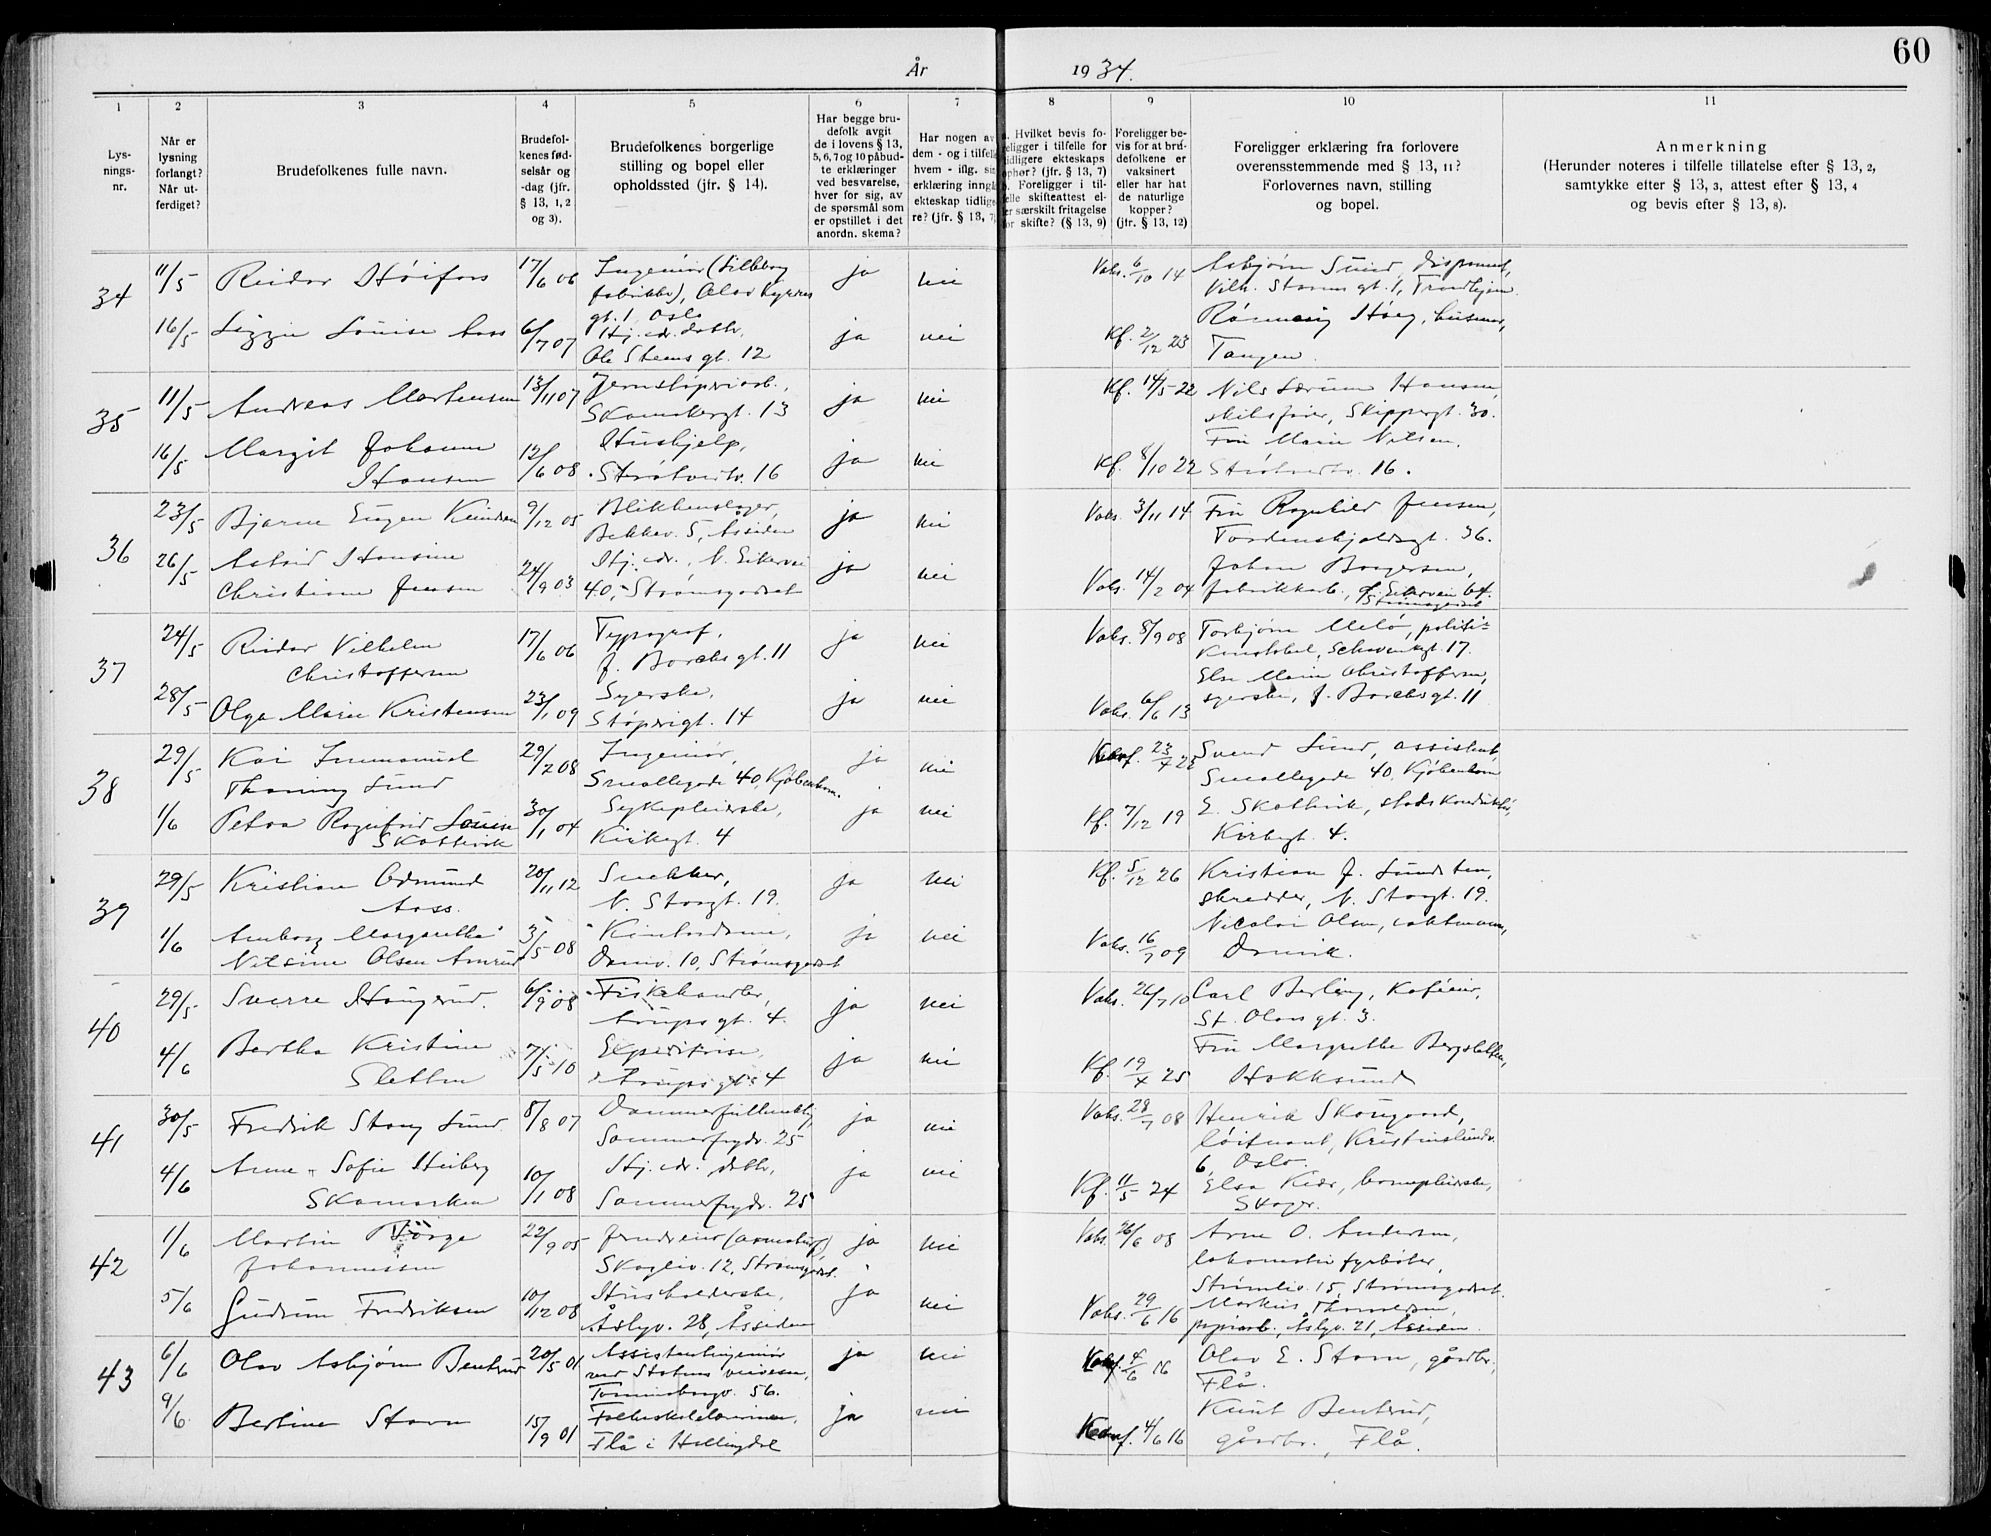 60
År 1934.
1 2 3 4 5 6 7 8 9 10 11
Lys-
nings-
nr.
Når er
lysning
forlangt?
Når ut-
ferdiget?
Brudefolkenes fulle navn.
Brudefol-
kenes fød-
selsår og
-dag (jfr.
§ 13, 1, 2
og 3).
Brudefolkenes borgerlige
stilling og bopel eller
opholdssted (jfr. § 14).
Har begge bru-
defolk avgit
de i lovens § 13,
5, 6, 7 og 10 påbud-
te erklæringer
ved besvarelse,
hver for sig, av
de spørsmål som
er opstillet i det
anordn. skema?
Har nogen av
dem - og i tilfelle
hvem - iflg. sin
erklæring inngå
ekteskap tidlige-
re? (jfr. § 13, 7
a. Hvilket bevis fo-
religger i tilfelle for
tidligere ekteskaps
ophør? (jfr. § 13, 7)
b. Foreligger i til-
felle skifteattest el-
ler særskilt fritagelse
for skifte? (§ 13, 9)
Foreligger be-
vis for at bru-
defolkene er
vaksinert
eller har hat
de naturlige
kopper?
(jfr. § 13, 12)
Foreligger erklæring fra forlovere
overensstemmende med § 13, 11?
Forlovernes navn, stilling
og bopel.
Anmerkning
(Herunder noteres i tilfelle tillatelse efter § 13, 2,
samtykke efter § 13, 3, attest efter § 13, 4
og bevis efter § 13, 8).
34
11/5 Reidar Høifoss 17/6 06 Ingeniør (Lilleborg ja nei Vaks. 6/10 14 Asbjørn Sund, disponent,
fabrikker), Olav Kyrres Vilh. Storms gt. 1, Trondhjem.
gt. 1, Oslo Rønnaug Høeg, husmor,
16/5 Lizzie Louise Aass 6/7 07 Hj. vr. datter, ja nei Kf. 2/12 23
Ole Steens gt. 12 Tangen.
35
11/5 Andreas Mortensen 13/11 07 Jernstøperiarb., ja nei Kf. 14/5 22 Nils Lærum Hansen,
Skomakergt. 13 Skippergt. 30.
Fru Marie Nilsen.
16/5 Margit Johanne 12/6 08 Hushjelp, ja nei Kf. 8/10 22 Strøtvetv. 16.
Hansen Strøtvetv. 16
36
23/5 Bjarne Eugen Knudsen 9/12 05 Blikkenslager, ja nei Vaks. 3/11 14 Fru Ragnhild Jensen,
Bekkev. 5, Åssiden Tordenskjoldsgt. 36.
26/5 Astrid Hansine 24/9 03 Hj. vr., N. Eikervei ja nei Vaks. 14/2 04 Johan Borgersen,
Christiane Jensen 40, Strømsgodset fabrikkarb., Ø. Eikervei 64.
Strømsgodset
37
24/5 Reidar Vilhelm 17/6 06 Typograf, ja nei Vaks. 8/9 08 Torbjørn Melø, politi-
Christoffersen J. Borchs gt. 11 konstabel, Schwenkegt. 17.
Else Marie Christoffersen,
28/5 Olga Marie Kristensen 23/1 09 Syerske, ja nei Vaks. 6/6 13 syerske, J. Borchs gt. 11
Støperigt. 14
38
29/5 Kai Immanuel 29/2 08 Ingeniør, ja nei Konf. 23/4 22 Svend Lund, assistent,
Thaning Lund Smallegade 40, Kjøbenhavn. Smallegade 40, Kjøbenhavn
1/6 Petra Ragnfrid Louise 30/1 04 Sykepleierske, ja nei Kf. 7/12 19 E. Skattvik, stadskonduktør,
Skattvik Kirkegt. 4 Kirkegt. 4.
39
29/5 Kristian Edmund 20/11 12 Snekker, ja nei Kf. 5/12 26 Kristian J. Lundsten,
Aass. N. Storgt. 19. skredder, N. Storgt. 19.
1/6 Amborg Margarethe 3/5 08 Kontordame, ja nei Vaks. 16/7 09 Nicolai Olsen, vaktmann,
Nilsine Olsen Amrud Danv. 10, Strømsgodset Danvik.
40
29/5 Sverre Haugerud. 6/9 08 Fiskehandler, ja nei Vaks. 26/7 10 Carl Berling, Kaféeier,
Arups gt. 4. St. Olavs gt. 3.
4/6 Bertha Kristine 7/5 10 Expeditrise, ja nei Kf. 19/4 25 Fru Margrethe Bergstølen,
Sletten Arups gt. 4 Hokksund
41
30/5 Fredrik Stang Lund. 8/8 07 Dommerfullmektig, ja nei Vaks. 28/7 08 Henrik Skougaard,
Sommerfrydv. 25 løitnant, Kristinelundv.
6, Oslo.
4/6 Anne-Sofie Heiberg 10/1 08 Hj. vr. datter, ja nei Kf. 11/5 24 Elsa Kiær, barnepleierske,
Skamarken Sommerfrydv. 25 Stager.
42
1/6 Martin Børge 22/9 05 Jerndreier (armatur) ja nei Vaks. 26/6 08 Arne O. Andersen,
Johannessen Skogliv. 12, Strømsgodset. lokomotivfyrbøter,
Strømliv. 15, Strømsgodset.
5/6 Gudrun Fredriksen 10/12 08 Husholderske, ja nei Vaks. 29/6 16 Markus Thomesen,
Åsbyv. 28, Åssiden papirarb., Åsbyv. 21, Åssiden.
43
6/6 Olav Asbjørn Bentrud 20/5 01 Assistentingeniør ja nei Konf. 4/6 16 Olav E. Stavn, gårdbr.
ved Statens veivesen, Flå.
Tomineborgv. 56.
9/6. Bertine Stavn 15/9 01 Folkeskolelærerinne, ja nei Konf. 4/6 16 Knut Bentrud,
Flå i Hallingdal gårdbr., Flå.